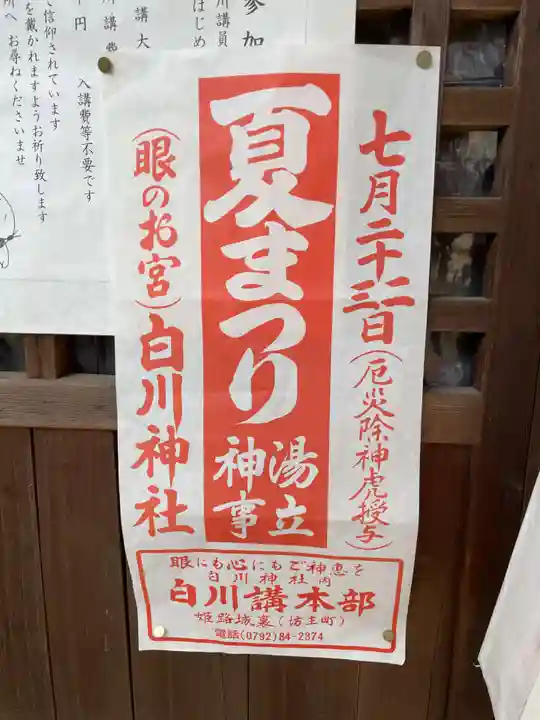 参加
川講員
はじめ
講大
川講費
千円
入講費等不要です
て信仰されています
を戴かれますようお祈り致します
所へ お尋ねくださいませ
七月二十二三日(厄災除神虎授与)
夏まつり
湯立
神事
(眼のお宮)白川神社
眼にも心にもご神恵を
白川神社内
白川講本部
姫路城裏(坊主町)
電話(0792)84-2374